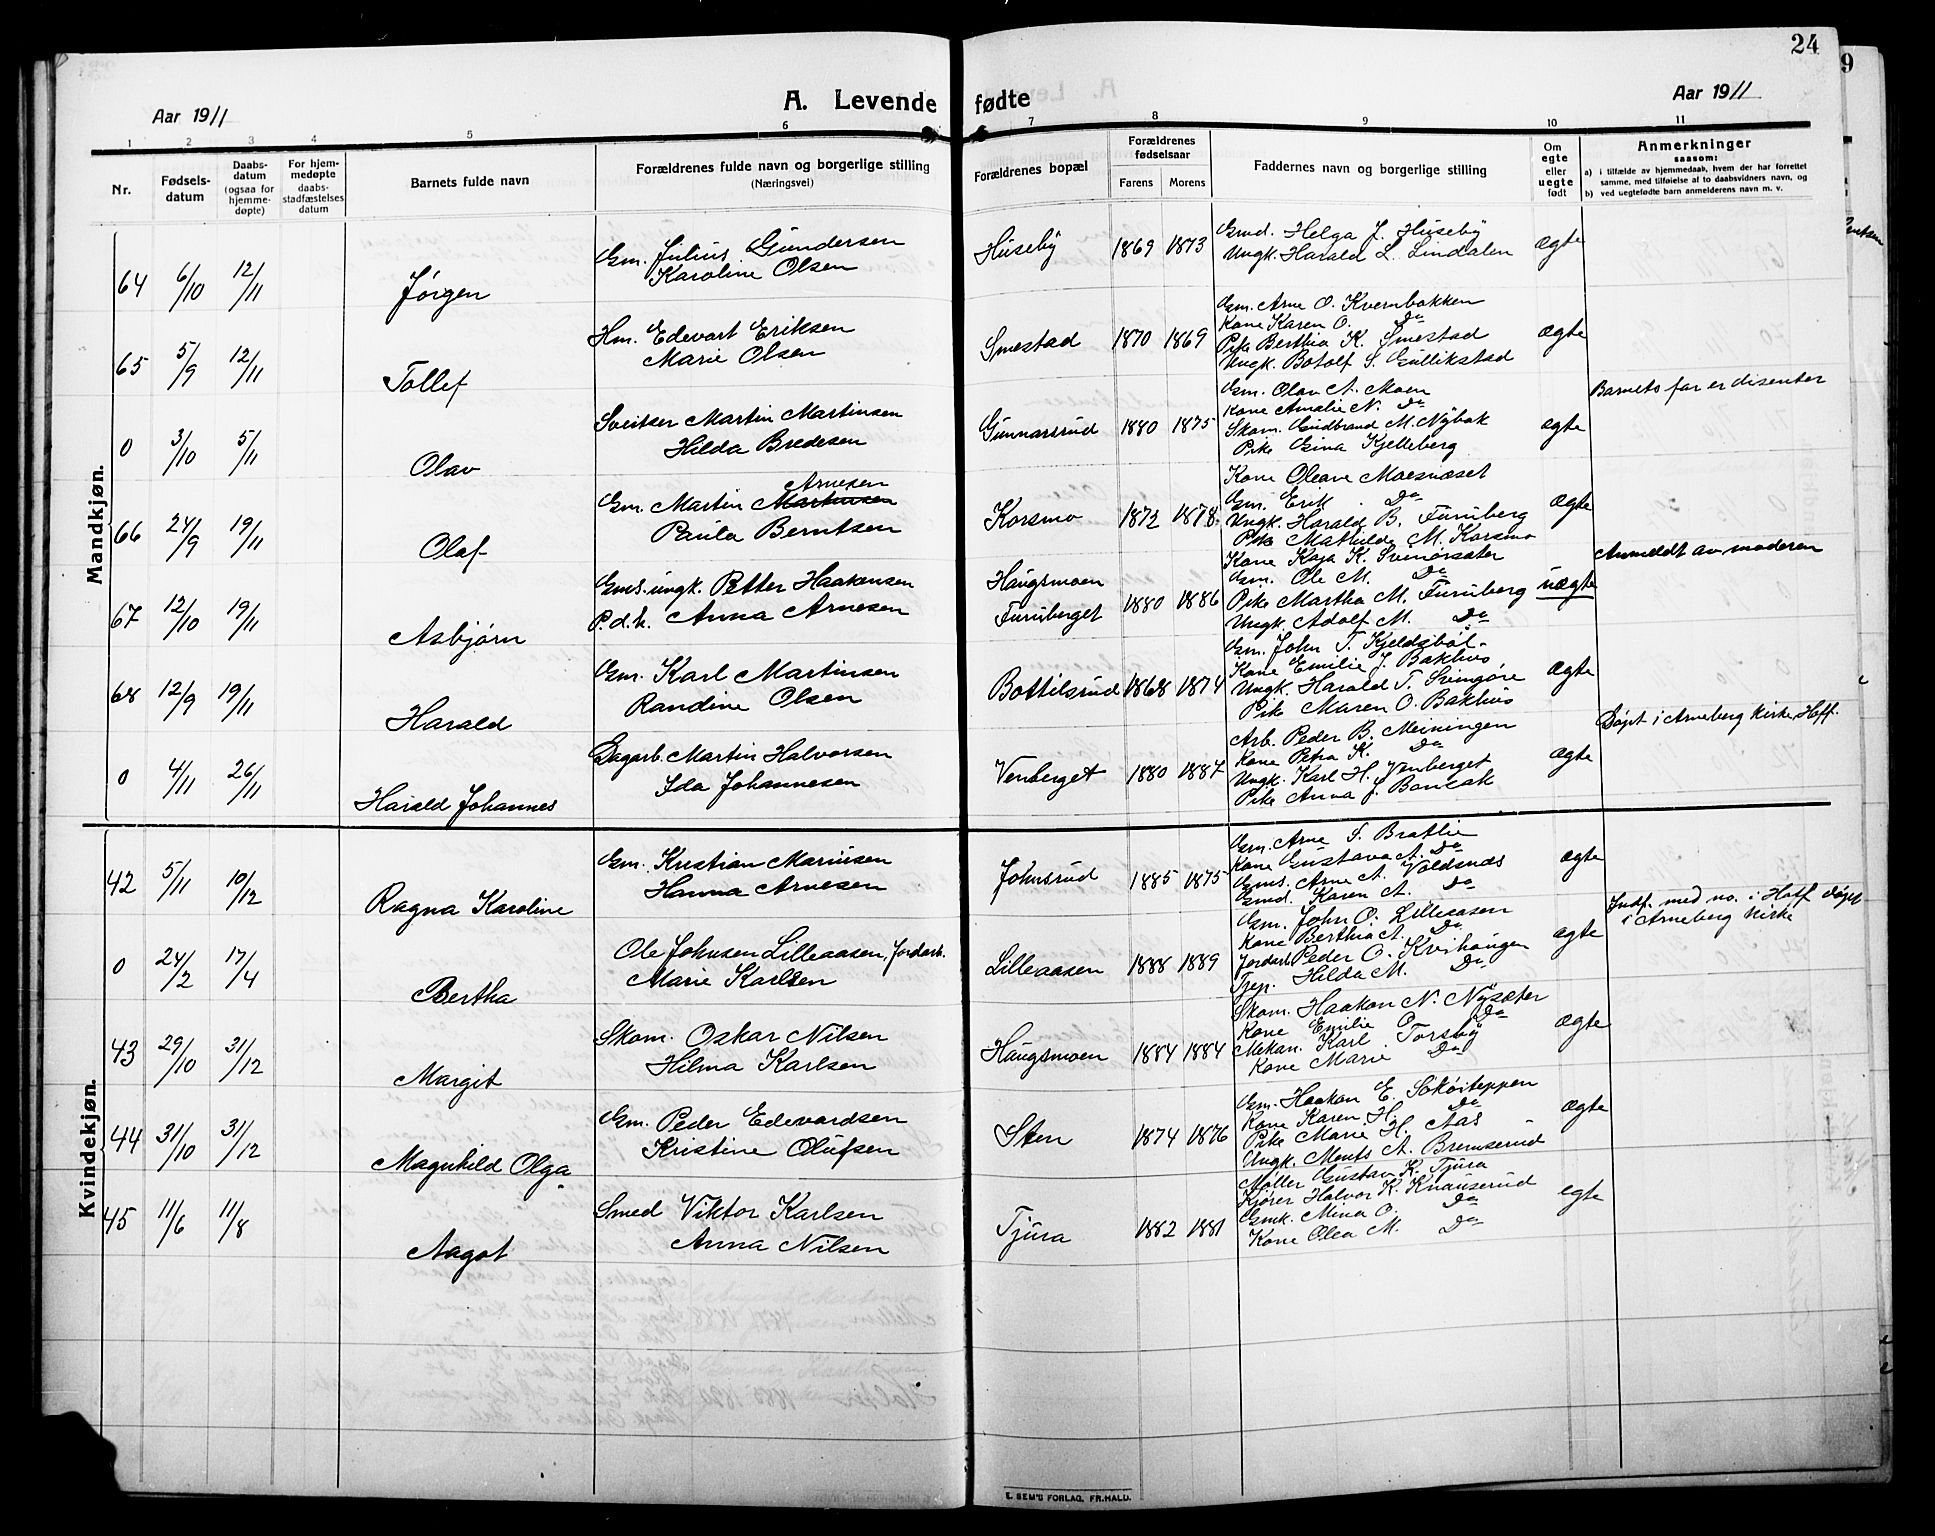 24
9
A. Levende fødte
Aar 1911
Aar 1911
1 2 3 4 5 6 7 8 9 10 11
Nr.
Fødsels-
datum
Daabs-
datum
(ogsaa for
hjemme-
døpte)
For hjem-
medøpte
daabs-
stadfæstelses
datum
Barnets fulde navn
Forældrenes fulde navn og borgerlige stilling
(Næringsvei)
Forældrenes bopæl
Forældrenes
fødselsaar
Farens Morens
Faddernes navn og borgerlige stilling
Om
egte
eller
uegte
født
Anmerkninger
saasom:
a) i tilfælde av hjemmedaab, hvem der har forrettet
samme, med tilføielse af to daabsvidners navn, og
b) ved uegtefødte barn anmelderens navn m. v.
Mandkjøn.
64 6/10 12/11 Jørgen
Gm. Julius Gundersen
Karoline Olsen
Huseby 1869 1873
Gmd. Helga J. Huseby
Ungk. Harald L. Lindalen
ægte
65 5/9 12/11 Tollef
Hm. Edevart Eriksen
Marie Olsen
Smestad 1870 1869
Gm. Arne O. Kvernbakken
Kone Karen O. Do
Pike Berthia K. Smestad
Ungk. Botolf S. Gullikstad
ægte
0 3/10 5/11 Olav
Sveitser Martin Martinsen
Hilda Bredesen
Gunnarsrud 1880 1875
Gm. Olav A. Moen
Kone Amalie N. Do
Skom. Gudbrand M. Nybak
Pike Gina Kjelleberg
ægte
Barnets far er disenter
66 24/9 19/11 Olaf
Arnesen
Gm. Martin Martinsen
Paula Berntsen
Korsmo 1872 1878
Kone Oleave Moesnæset
Gm. Erik Do
Ungk. Harald B. Furuberg
Pike Mathilde M. Korsmo
ægte
67 12/10 19/11 Asbjørn
Gms. ungk. Petter Haakensen
P.d.h. Anna Arnesen
Haugsmoen
Furuberget 1880 1886
Kone Kaja K. Svenørsæter
Gm. Ole M. Do
Pike Martha M. Furuberg
Ungk. Adolf M. Do
uægte
Anmeldt av moderen
68 12/9 19/11 Harald
Gm. Karl Martinsen
Randine Olsen
Bottilsrud 1868 1874
Gm. John T. Kjeldsbøl
Kone Emilie J. Bakhus
Ungk. Harald T. Svingøre
Pike Maren O. Bakhus
ægte
0 4/11 26/11 Harald Johannes
Dagarb. Martin Halvorsen
Ida Johannesen
Venberget 1880 1887
Arb. Peder B. Meiningen
Kone Petra K. Do
Ungk. Karl H. Venberget
Pike Anna J. Bonsak
ægte
Døpt i Arneberg Kirke, Hoff.
Kvindekjøn.
42 5/11 10/12 Ragna Karoline
Gm. Kristian Mariusen
Hanna Arnesen
Johnsrud 1885 1875
Gm. Arne S. Bratlie
Kone Gustava A. Do
Gms. Arne A. Voldsnæs
Gmd. Karen A. Do
ægte
0 24/2 17/4 Bertha
Ole Johnsen Lilleaasen, Jordarb.
Marie Karlsen
Lilleaasen 1888 1889
Gm. John O. Lilleaasen
Kone Berthia A. Do
Jordarb. Peder O. Kvihaugen
Tjep. Hilda M. Do
ægte
Indf. med no. i Hoff døpt
i Arneberg Kirke
43 29/10 31/12 Margit
Skom. Oskar Nilsen
Hilma Karlsen
Haugsmoen 1884 1884
Skom. Haakon N. Nysæter
Kone Emilie O. Do
Mekan. Karl Torsby
Kone Marie Do
ægte
44 31/10 31/12 Magnhild Olga
Gm. Peder Edevardsen
Kristine Olufsen
Sten 1874 1876
Gm. Haakon E. Sokøiteppen
Kone Karen H. Do
Pike Marie H. Aas
Ungk. Ments A. Bremserud
ægte
45 11/6 11/8 Aagot
Smed Viktor Karlsen
Anna Nilsen
Tjura 1882 1881
Møller Gustav K. Tjura
Kjører Halvor K. Knauserud
Gmk. Mina O. Do
Kone Olea M. Do
egte
E. SEM'S FORLAG, FR.HALD.